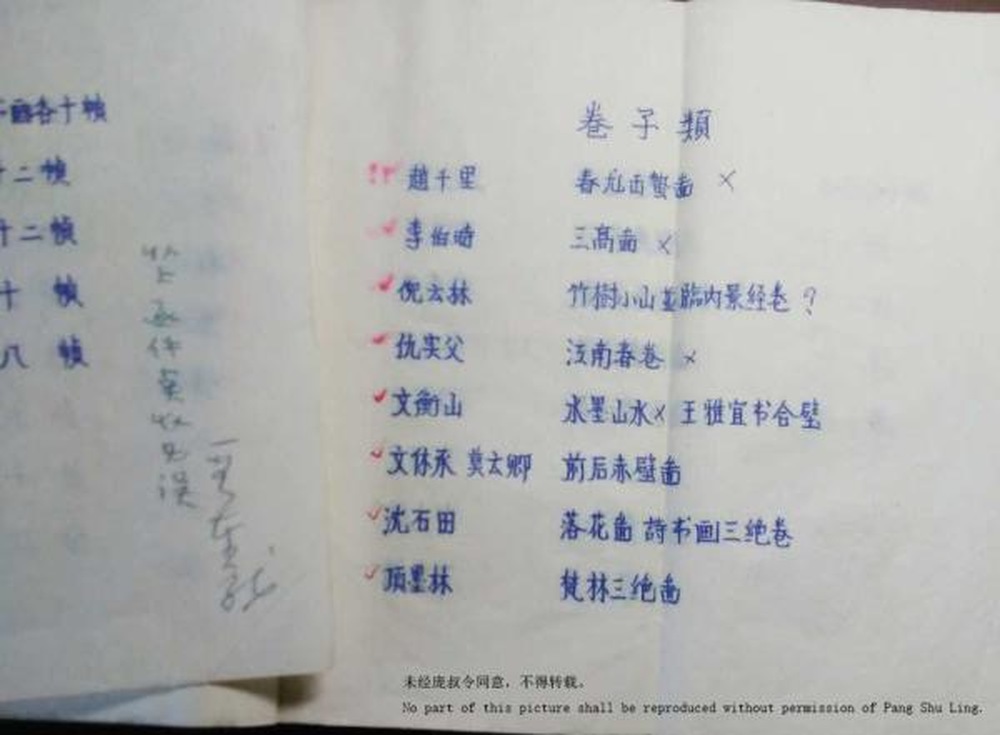 各十幀
十二幀
十二幀
十 幀
八 幀
卷子類
趙千里 春龙百蟹啚 ×
李伯時 三高啚 ×
倪云林 竹樹小山並臨内景経卷 ?
仇实父 江南春卷 ×
文衡山 水墨山水× 王雅宜书合壁
文休承 莫云卿 前后赤壁啚
沈石田 落花啚 詩书画三绝卷
项墨林 梵林三绝啚
未经庞叔令同意，不得转载。
No part of this picture shall be reproduced without permission of Pang Shu Ling.